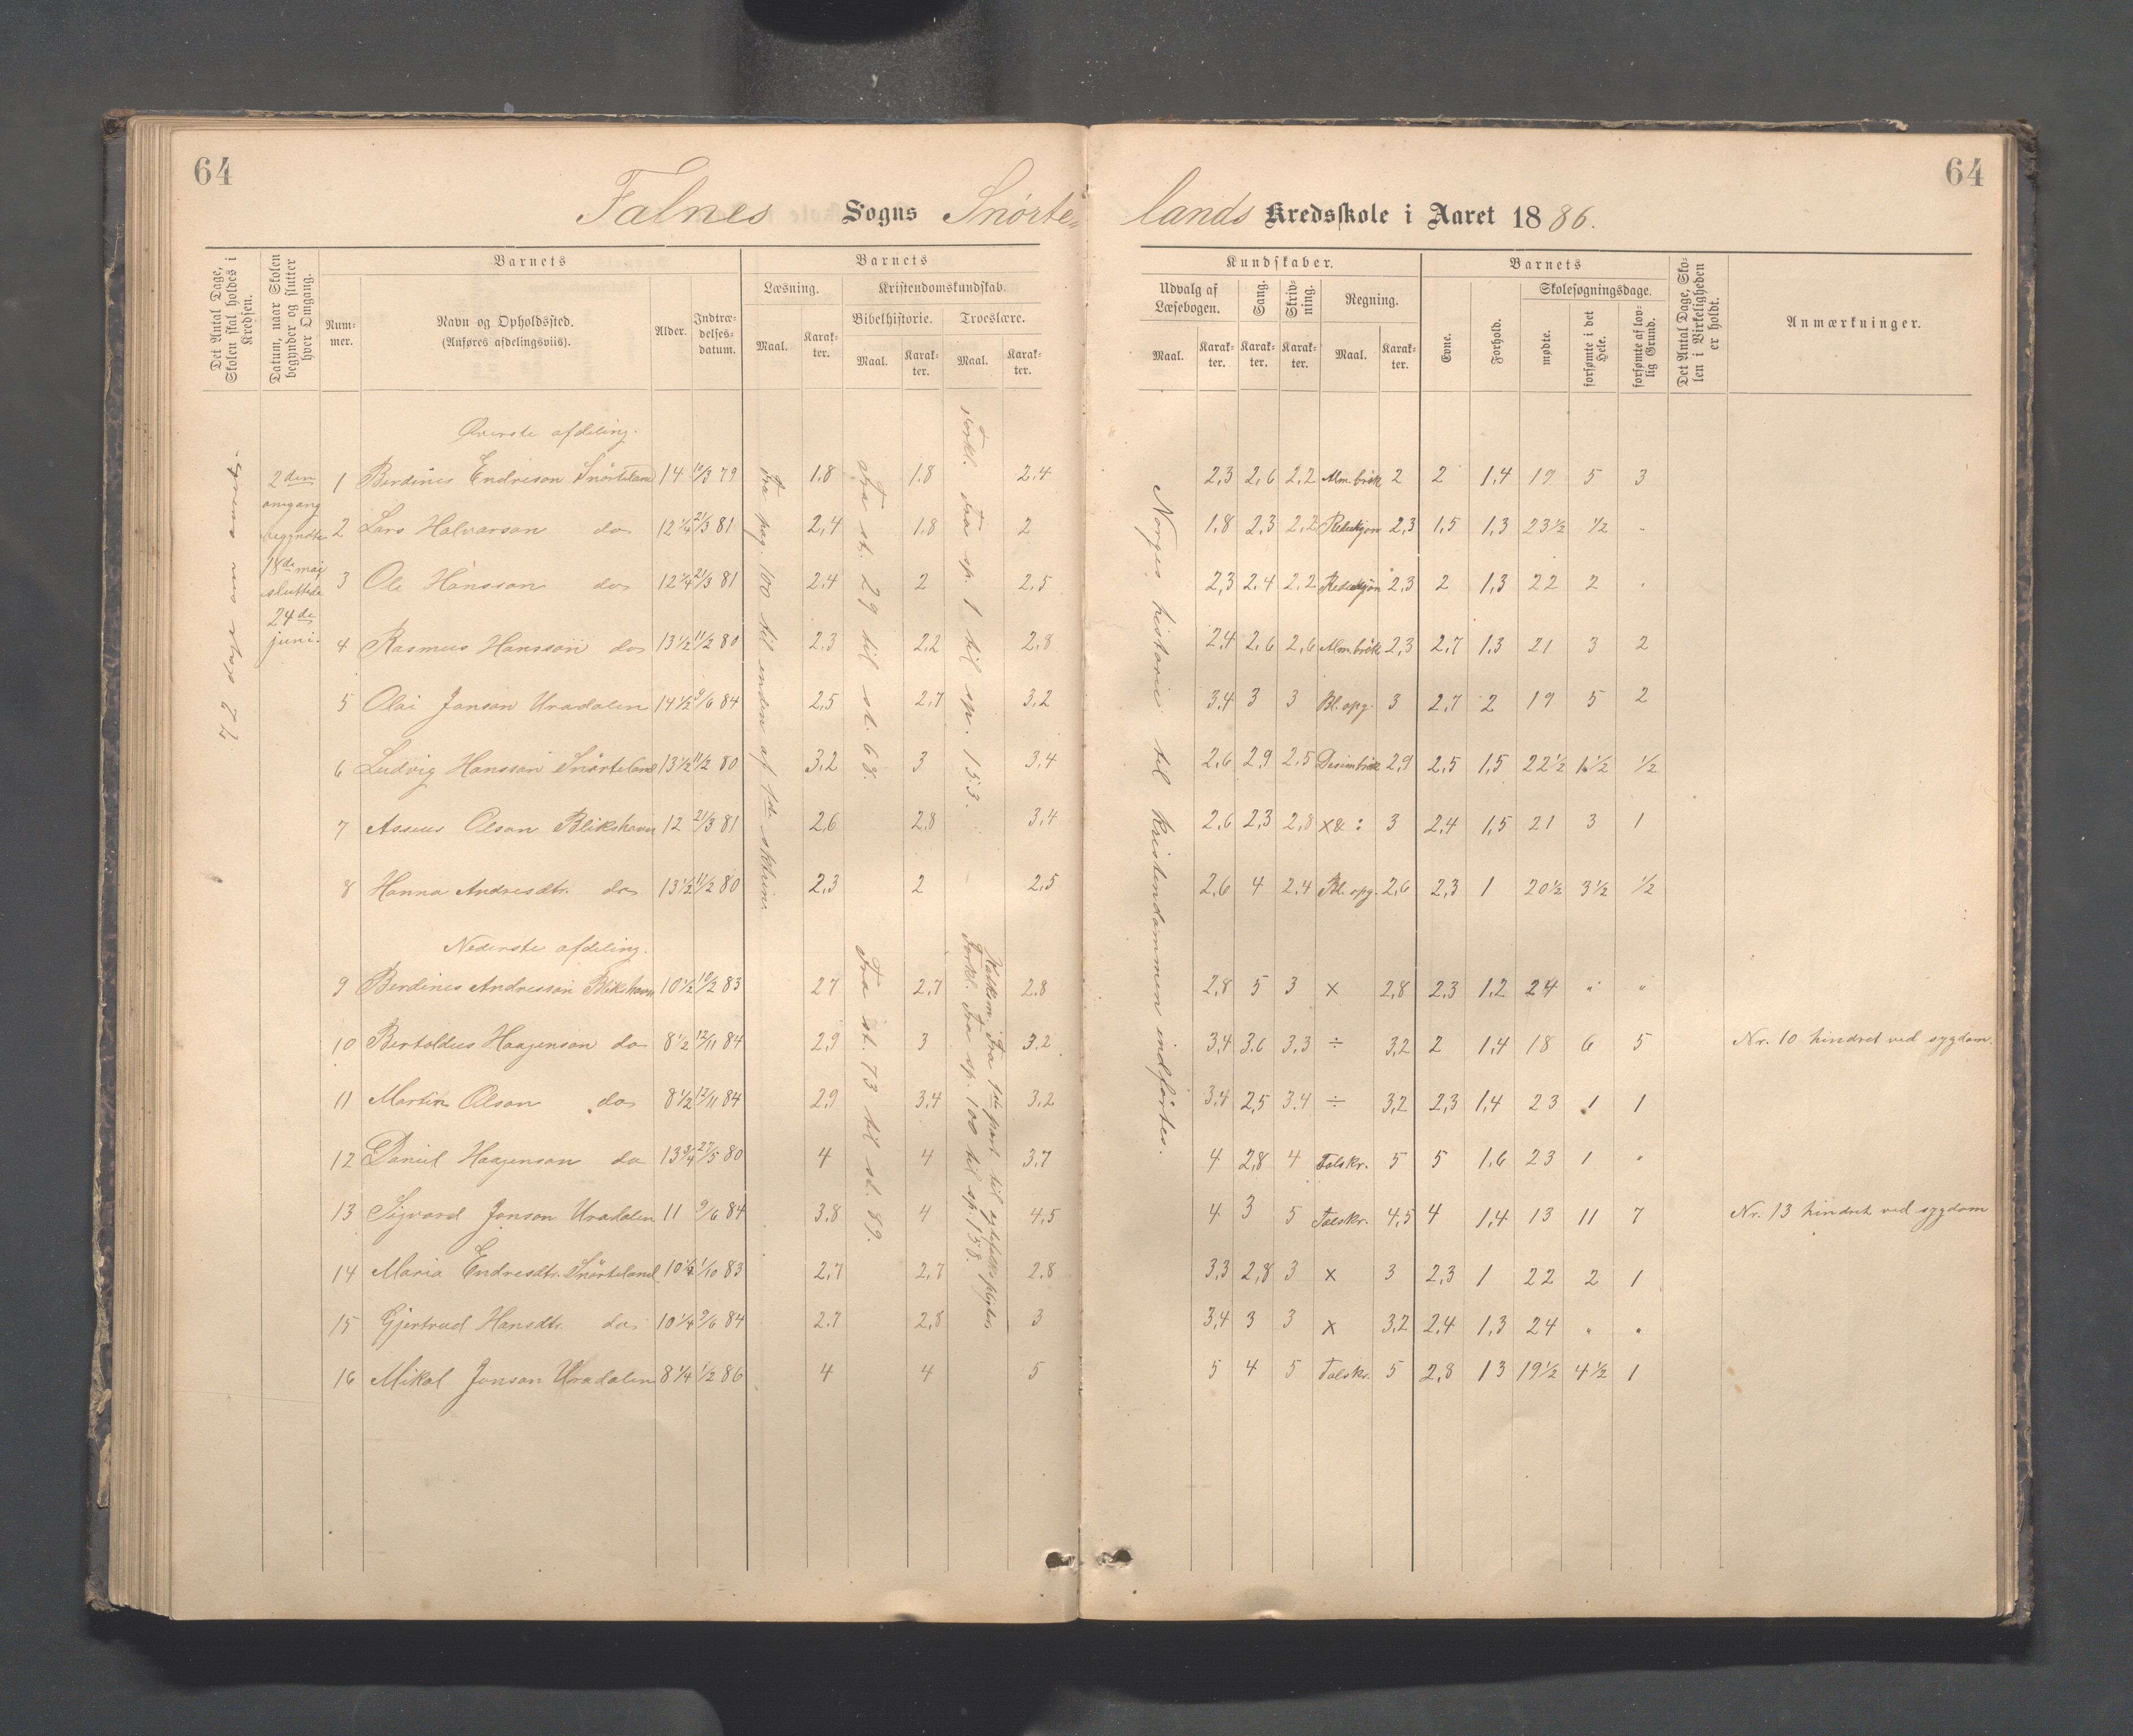 64
64
Falnes Sogns Snörte-
lands Kredsskole i Aaret 1886.
Det Antal Dage, Skolen skal holdes i Kredsen.
Datum, naar Skolen begynder og slutter hver Omgang.
Barnets
Nummer.
Navn og Opholdssted.
(Anføres afdelingsviis).
Alder.
Indtrædelsesdatum.
Barnets
Læsning.
Maal.
Karakter.
Kristendomskundskab.
Bibelhistorie.
Maal.
Karakter.
Troeslære.
Maal.
Karakter.
Kundskaber.
Udvalg af Læsebogen.
Maal.
Karakter.
Sang.
Karakter.
Skrivning.
Karakter.
Regning.
Maal.
Karakter.
Barnets
Evne.
Forhold.
Skolesøgningsdage.
mødte.
forsømte i det Hele.
forsømte af lovlig Grund.
Det Antal Dage, Skolen i Virkeligheden er holdt.
Anmærkninger.
72
2den omgang begyndte 18de maj sluttede 24de juni.
Fra pag. 100 til enden af 1ste
Fra st. 29 til st. 68.
Forkl. Fra sp. 1 til sp. 153.
Norges historie til kristendommen indførtes.
Øverste afdeling.
1 Berdines Endreson Snörteland 14 79 1.8 1.8 2.4 2,3 2,6 2,2 Alm. brök 2 2 1,4 19 5 3
2 Lars Halvarson do 12 1/4 21/3 81 2,4 1.8 2 1,8 2,3 2,2 Reduksjon 2,3 1,5 1,3 23½ ½ "
3 Ole Hansson do 12 1/4 21/3 81 2.4 2 2,5 2,3 2,4 2,2 Reduksjon 2,3 2 1,3 22 2 "
4 Rasmus Hansson do 13½ 11/2 80 2,3 2,2 2,8 2,4 2,6 2,6 Alm. brök 2,3 2,7 1,3 21 3 2
5 Olai Janson Uradalen 14½ 9/6 84 2,5 2,7 3,2 3,4 3 3 Bl. opg. 3 2,7 2 19 5 2
6 Ludvig Hansson Snörteland 13½ 11/2 80 3,2 3 3,4 2,6 2,9 2,5 Desimbrök 2,9 2,5 1,5 22½ 1½ ½
7 Asseus Olson Blikshavn 12 21/3 81 2,6 2,8 3,4 2,6 2,3 2,8 x & : 3 2,4 1,5 21 3 1
8 Hanna Andresdtr. do 13½ 11/2 80 2,3 2 2,5 2,6 4 2,4 Bl. opg. 2,6 2,3 1 20½ 3½ ½
Nederste afdeling.
Fra st. 73 til st. 89.
Forkl. Fra sp. 100 til sp. 158.
9 Berdines Andresson Blikshavn 10½ 83 2,7 2,7 2,8 2,8 5 3 x 2,8 2,3 1,2 24 " "
10 Bertoldus Haagenson do 8½ 12/11 84 2,9 3 3,2 3,4 3,6 3,3 ÷ 3,2 2 1,4 18 6 5 Nr. 10 hindret ved sygdom.
11 Martin Olson do 8½ 12/11 84 2,9 3,4 3,2 3,4 2,5 3,4 ÷ 3,2 2,3 1,4 23 1 1
12 Daniel Haagenson do 13¾ 27/5 80 4 4 3,7 4 2,8 4 Talskr. 5 5 1,6 23 1 "
13 Sigvard Janson Uradalen 11 9/6 84 3,8 4 4,5 4 3 5 Talskr. 4,5 4 1,4 13 11 7 Nr. 13 hindret ved sygdom
14 Maria Endresdtr. Snörteland 10¼ 1/10 83 2,7 2,7 2,8 3,3 2,8 3 x 3 2,3 1 22 2 1
15 Gjertrud Hansdtr. do 10¼ 9/6 84 2,7 2,8 3 3,4 3 3 x 3,2 2,4 1,3 24 " "
16 Mikal Janson Uradalen 8¼ 1/2 86 4 4 5 5 4 5 Talskr. 5 2,8 1,3 19½ 4½ 1